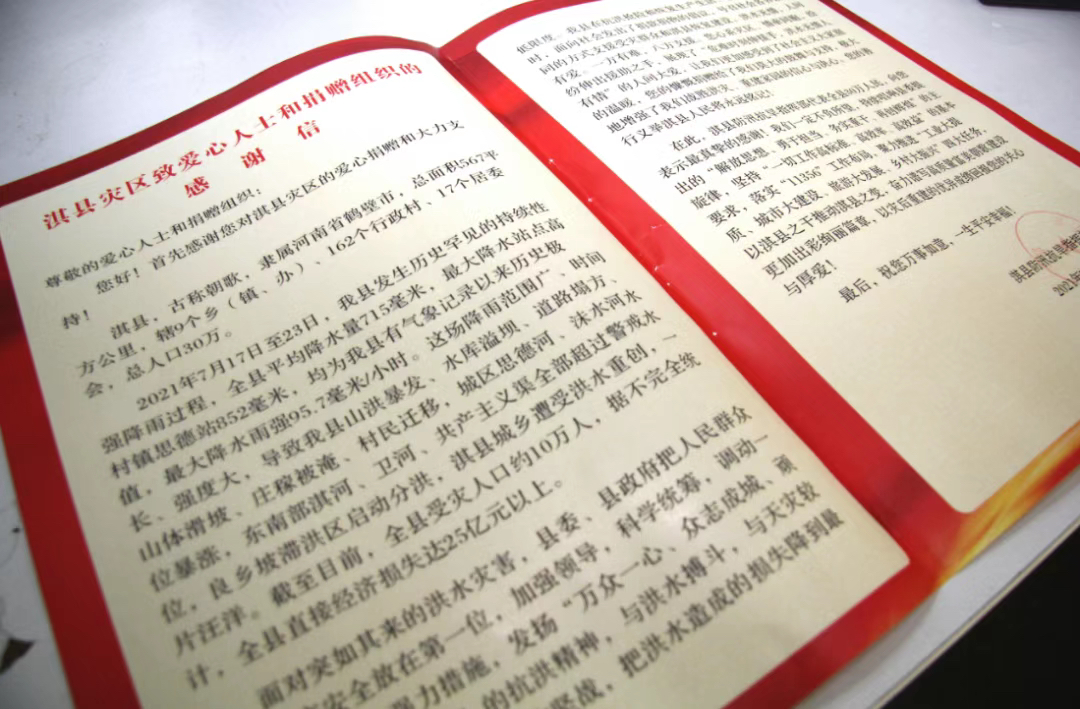 淇县灾区致爱心人士和捐赠组织的
感谢信
尊敬的爱心人士和捐赠组织：
您好！首先感谢您对淇县灾区的爱心捐赠和大力支
持！
淇县，古称朝歌，隶属河南省鹤壁市，总面积567平
方公里，辖9个乡（镇、办）、162个行政村、17个居委
会，总人口30万。
2021年7月17日至23日，我县发生历史罕见的持续性
强降雨过程，全县平均降水量715毫米，最大降水站点高
村镇思德站852毫米，均为我县有气象记录以来历史极
值，最大降水雨强95.7毫米/小时。这场降雨范围广、时间
长、强度大，导致我县山洪暴发、水库溢坝、道路塌方、
山体滑坡、庄稼被淹、村民迁移，城区思德河、沫水河水
位暴涨，东南部淇河、卫河、共产主义渠全部超过警戒水
位，良乡坡滞洪区启动分洪，淇县城乡遭受洪水重创，一
片汪洋。截至目前，全县受灾人口约10万人，据不完全统
计，全县直接经济损失达25亿元以上。
面对突如其来的洪水灾害，县委、县政府把人民群众
安全放在第一位，加强领导，科学统筹，调动一
强力措施，发扬“万众一心、众志成城、顽
的抗洪精神，与洪水搏斗，与天灾较
坚战，把洪水造成的损失降到最
低限度。我县在抗洪抢险
时，面向社会发出了捐款捐物的倡议，
间的方式支援受灾群众和
有爱。一方有难，八方支援，
纷伸出援助之手，诚挚了“
有情”的人间大爱，让我们更加感受到了社会主义大家庭
的温暖，您的慷慨捐赠给了我们莫大的鼓舞与支持，极大
地增强了我们战胜洪灾、重建家园的信心与决心，您的善
行义举淇县人民将永远铭记！
在此，淇县防汛抗旱指挥部代表全县30万人民，向您
表示最真挚的感谢！我们一定不负所望，持续唱响县委提
出的“解放思想、勇于担当、务实重干、再创辉煌”的主
旋律，坚持“一切工作高标准、高效率、高效益”的基本
要求，落实“11356”工作布局，聚力推进“工业大提
质、城市大建设、旅游大发展、乡村大振兴”四大任务，
以淇县之干推动淇县之变，奋力谱写高质量富美朝歌建设
更加出彩绚丽篇章，以灾后重建的优异成绩回报您的关心
与厚爱！
最后，祝您万事如意，一生平安幸福！
淇县防汛抗旱指挥
2021年